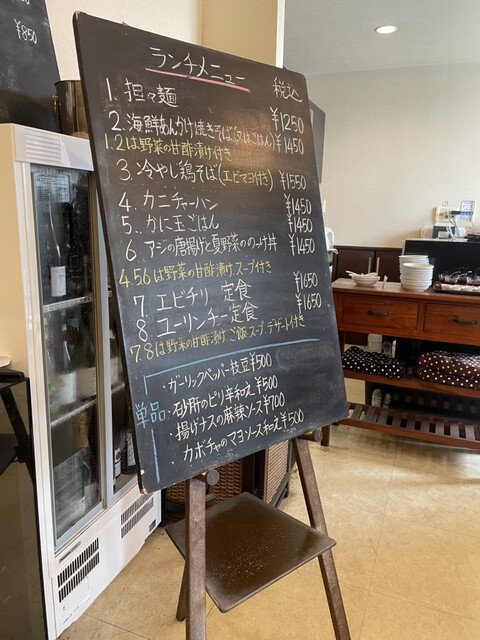 ¥850
ランチメニュー
税込
1. 担々麺 ¥1250
2. 海鮮あんかけ焼きそば(又はごはん) ¥1450
1.2は野菜の甘酢漬け付き
3. 冷やし鶏そば(エビマヨ付き) ¥1550
4. カニチャーハン ¥1450
5. かに玉ごはん ¥1450
6. アジの唐揚げと夏野菜ののっけ丼 ¥1450
4.5.6は野菜の甘酢漬け.スープ付き
7 エビチリ 定食 ¥1650
8 ユーリンチー定食 ¥1650
7.8は野菜の甘酢漬け.ご飯.スープ デザート付き
単品
・ガーリックペッパー枝豆¥500
・砂肝のピリ辛和え¥500
・揚げナスの麻辣ソース¥700
・カボチャのマヨソース和え¥500